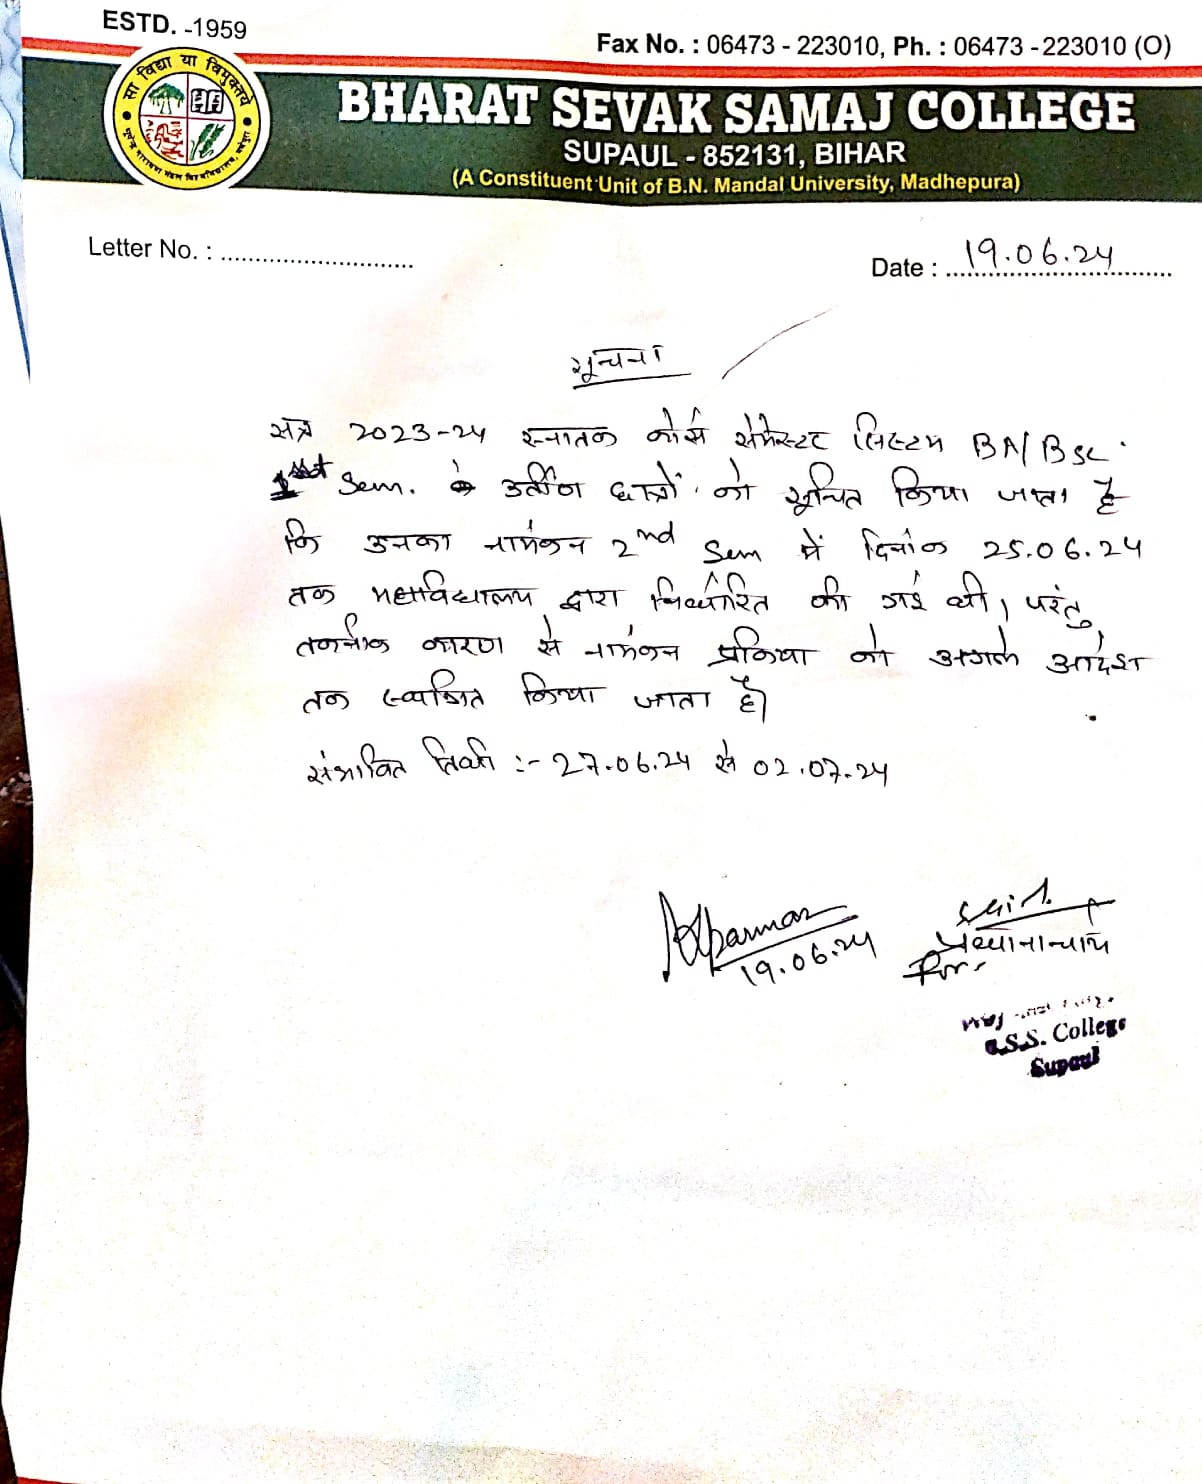 ESTD. -1959
Fax No. : 06473 - 223010, Ph. : 06473 -223010 (O)
सा विद्या या विमुक्तये
BHARAT SEVAK SAMAJ COLLEGE
SUPAUL - 852131, BIHAR
(A Constituent Unit of B.N. Mandal University, Madhepura)
Letter No. : ............................
Date : 19.06.24
सूचना
सत्र 2023-24 स्नातक कोर्स सेमेस्टर सिस्टम BA/BSc
1st Sem. के उर्तीण छात्रों को सूचित किया जाता है
कि उनका नामांकन 2nd Sem में दिनांक 25.06.24
तक महाविद्यालय द्वारा निर्धारित की गई थी, परंतु
तकनीक कारण से नामांकन प्रक्रिया को अगले आदेश
तक स्थगित किया जाता है।
संभावित तिथि :- 27.06.24 से 02.07.24
19.06.24
प्रधानाचार्य
B.S.S. College
Supaul